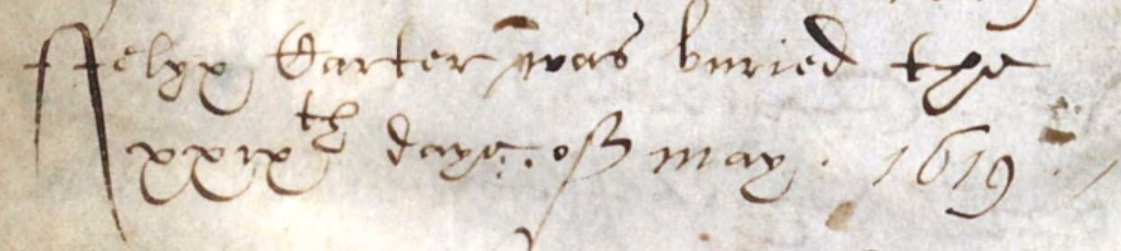 ffelyx Carter was buried the
xxixth daye: of may. 1619